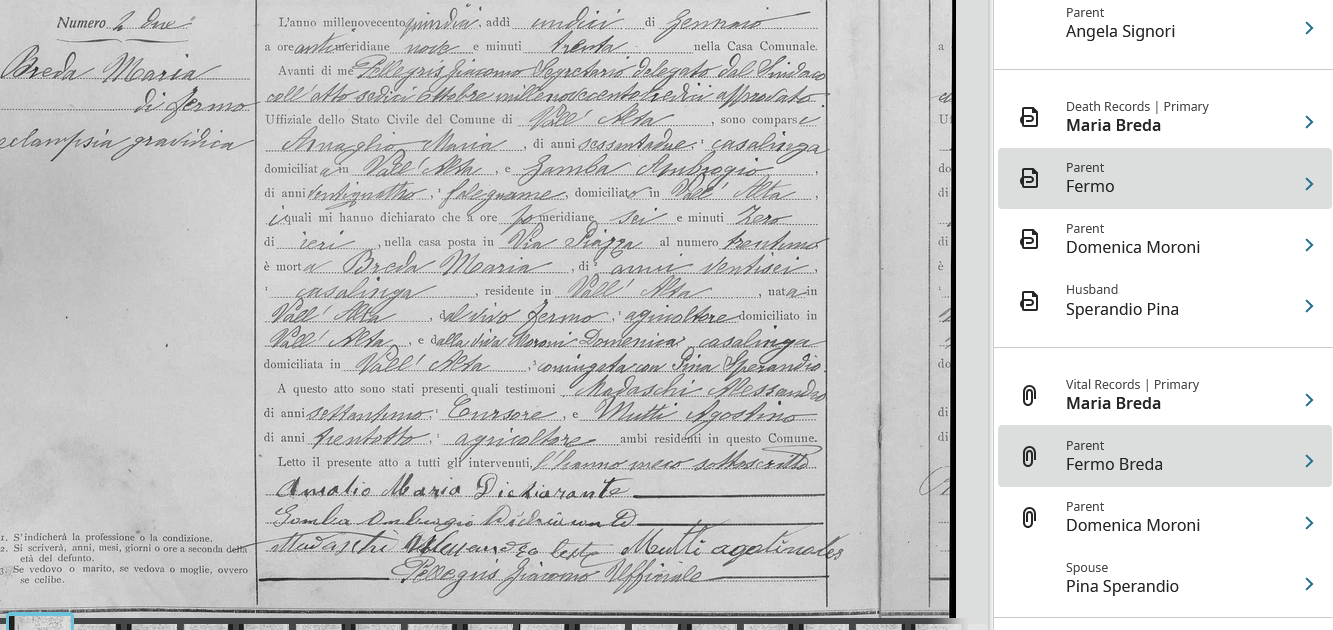 Numero 2 due
Breda Maria
di Fermo
eclampsia gravidica
1. S'indicherà la professione o la condizione.
2. Si scriverà, anni, mesi, giorni o ore a seconda della
età del defunto.
3. Se vedovo o marito, se vedova o moglie, ovvero
se celibe.
L'anno millenovecentoquindici, addì undici di Gennaio
a ore antimeridiane nove e minuti trenta nella Casa Comunale.
Avanti di me Pellegris Giacomo Segretario delegato dal Sindaco
coll'atto sedici Ottobre millenovecentotredici approvato
Uffiziale dello Stato Civile del Comune di Vall' Alta, sono comparsi
Maria, di anni sessantadue, casalinga
domiciliata in Vall' Alta, e Gamba Ambrogio
di anni ventiquattro, falegname, domiciliato in Vall' Alta,
i quali mi hanno dichiarato che a ore pomeridiane sei e minuti zero
di ieri, nella casa posta in Via Piazza al numero trentuno
è morta Breda Maria, di anni ventisei,
casalinga, residente in Vall' Alta, nata in
Vall' Alta, dal vivo Fermo, agricoltore domiciliato in
Vall' Alta, e dalla viva Moroni Domenica, casalinga
domiciliata in Vall' Alta, coniugata con Pina Sperandio.
A questo atto sono stati presenti quali testimoni Madaschi Alessandro
di anni settantuno, Cursore, e Mutti Agostino
di anni trentotto, agricoltore ambi residenti in questo Comune.
Letto il presente atto a tutti gli intervenuti, l'hanno meco sottoscritto
Maria Dichiarante
Gamba Ambrogio
Madaschi Alessandro teste Mutti agostino tes
Pellegris Giacomo Uffiziale
Parent
Angela Signori
Death Records | Primary
Maria Breda
Parent
Fermo
Parent
Domenica Moroni
Husband
Sperandio Pina
Vital Records | Primary
Maria Breda
Parent
Fermo Breda
Parent
Domenica Moroni
Spouse
Pina Sperandio